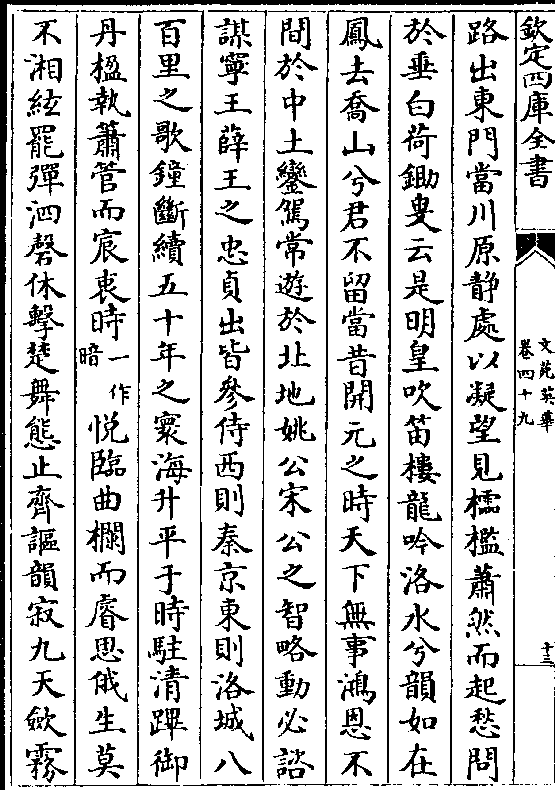 欽定四庫全書
文苑英華
卷四十九
十三
路出東門當川原静處以凝望見檽檻蕭然而起愁問
於垂白荷鋤叟云是明皇吹笛樓龍吟洛水兮韻如在
鳳去喬山兮君不留當昔開元之時天下無事鴻恩不
間於中土鑾駕常遊於北地姚公宋公之智略動必諮
謀寧王薛王之忠貞出皆參侍西則秦京東則洛城八
百里之歌鐘斷續五十年之寰海升平于時駐清蹕御
丹楹執簫管而宸衷時一作暗悅臨曲欄而睿思俄生莫
不湘絃罷彈泗磬休擊楚舞態止齊謳韻寂九天歛霧